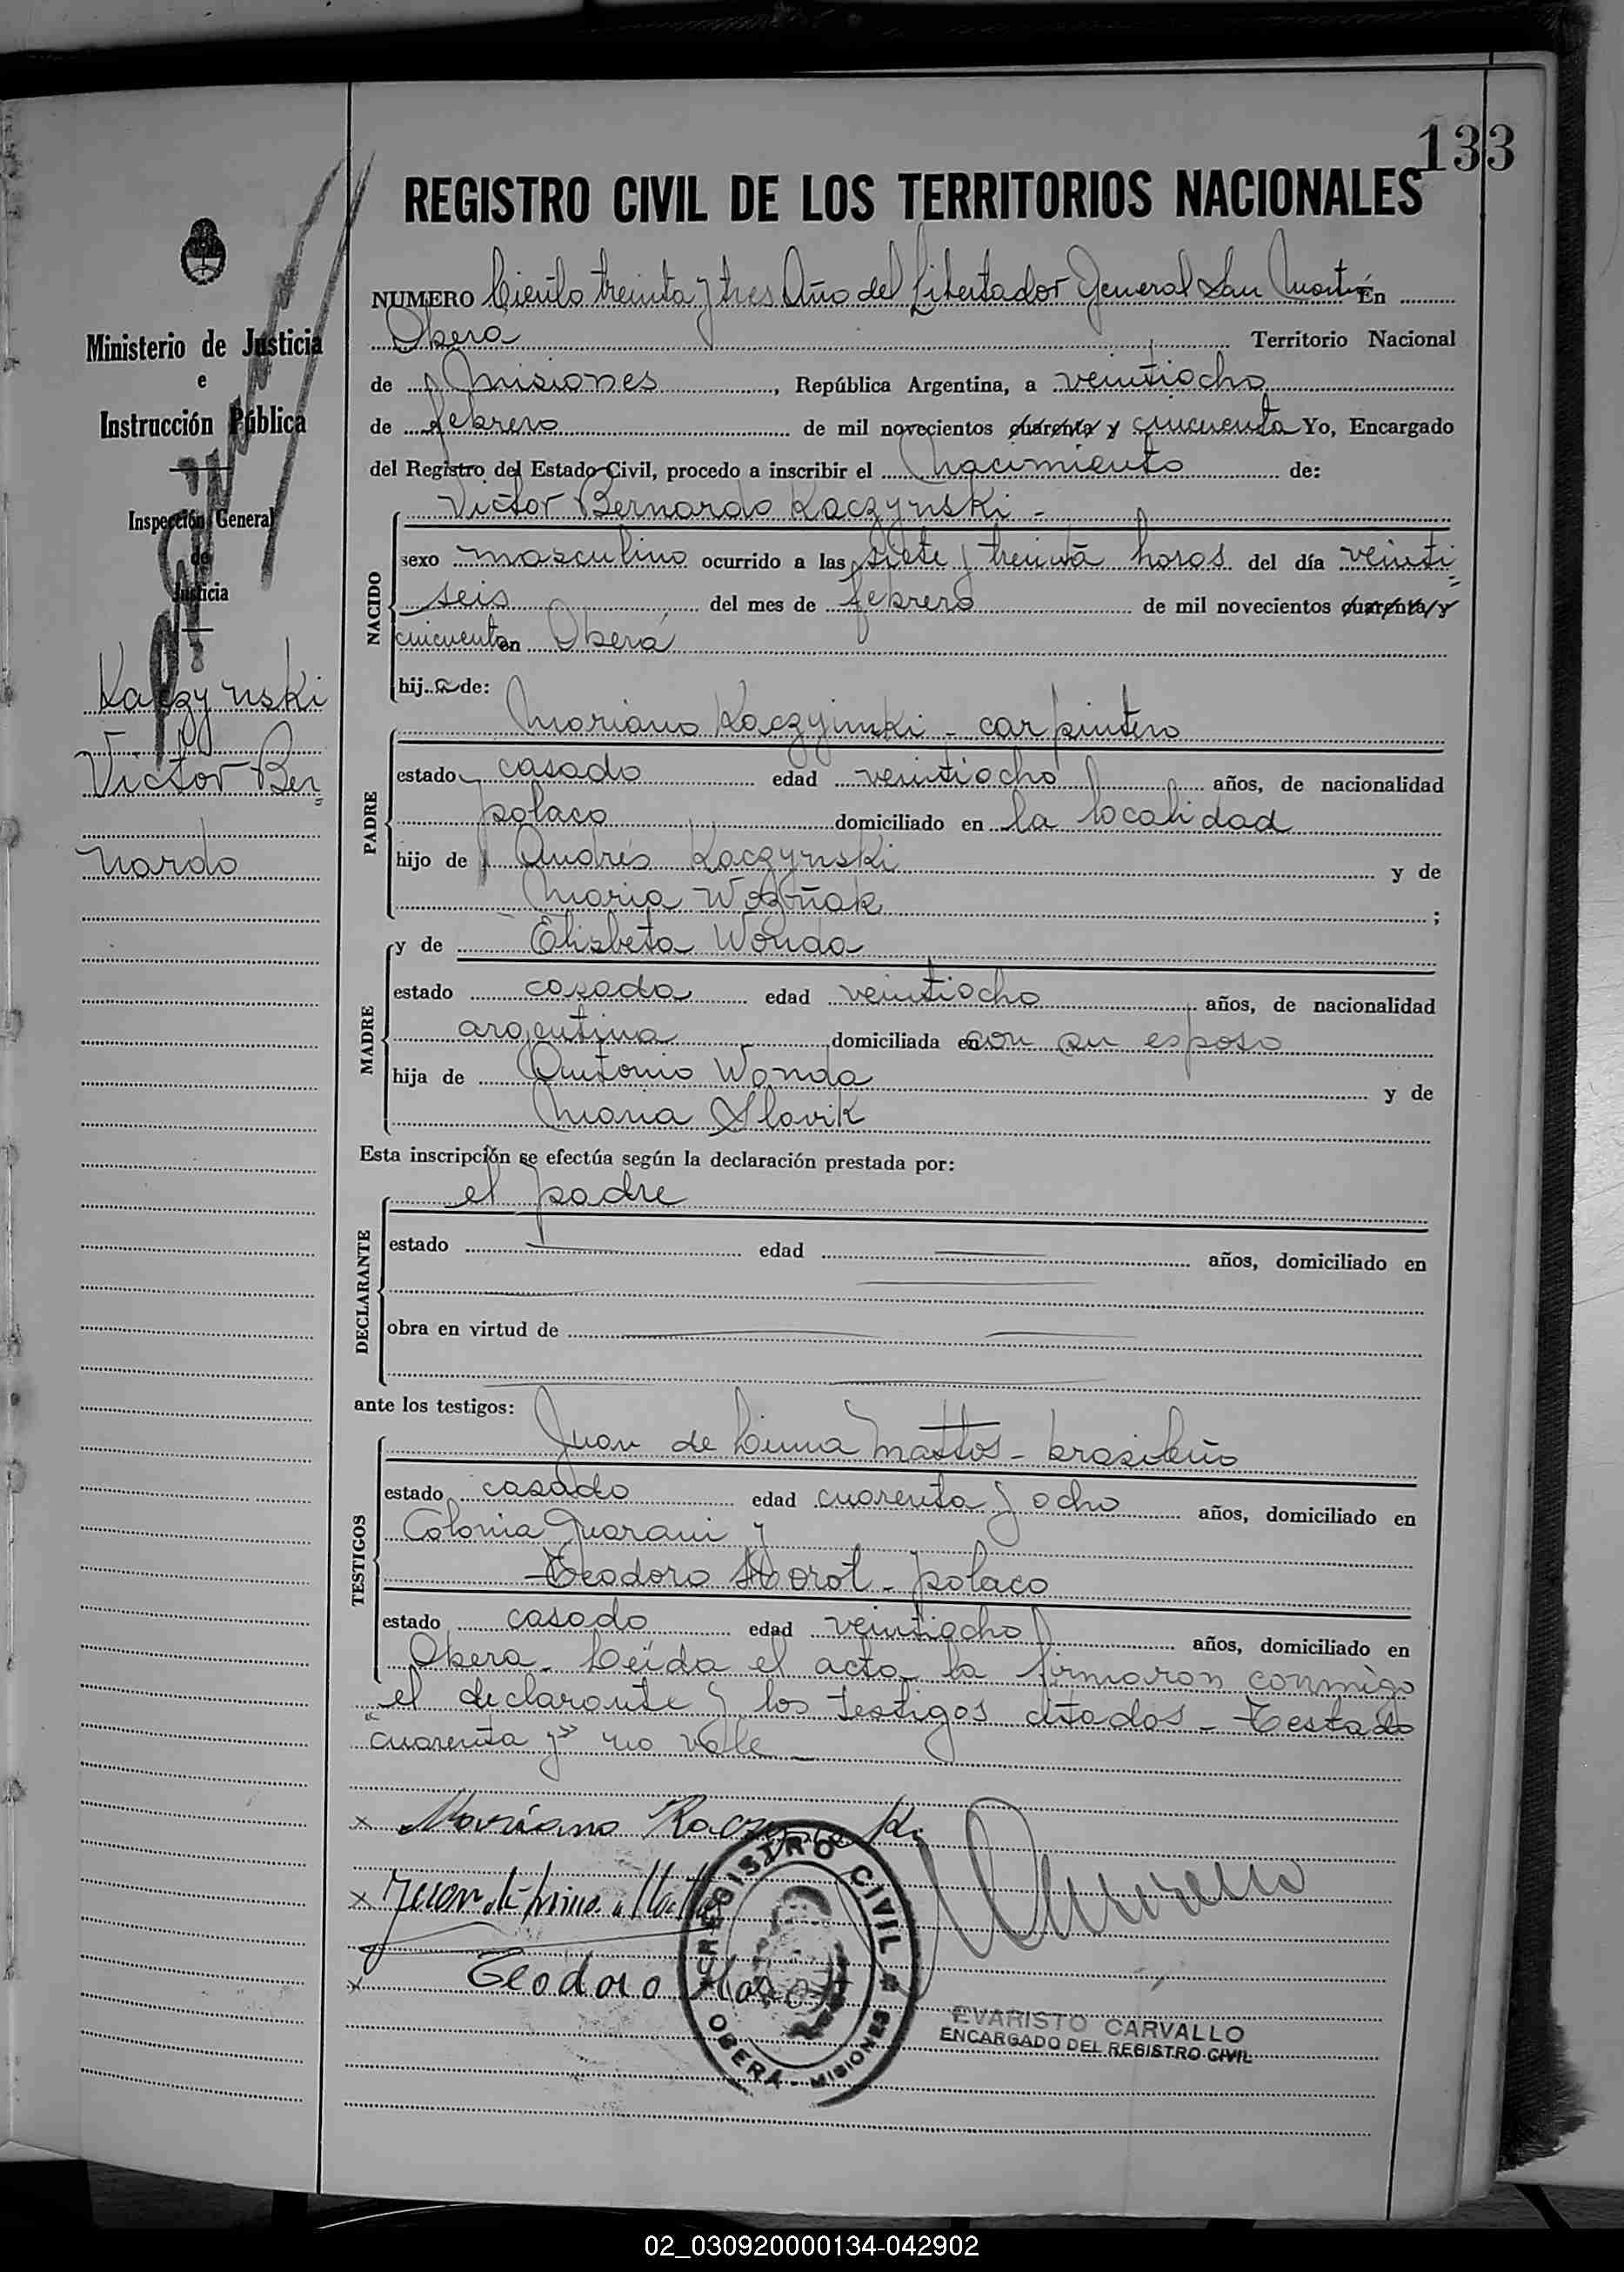 133
REGISTRO CIVIL DE LOS TERRITORIOS NACIONALES
NUMERO Ciento treinta y tres Año del Libertador General San Martin En
Obera Territorio Nacional
de Misiones, República Argentina, a veintiocho
de febrero de mil novecientos cuarenta y cincuenta Yo, Encargado
del Registro del Estado Civil, procedo a inscribir el nacimiento de:
Victor Bernardo Kaczynski -
NACIDO
sexo masculino ocurrido a las siete y treinta horas del día veinti=
seis del mes de febrero de mil novecientos cuarenta y
cincuenta en Oberá
hijo de:
Mariano Kaczynski - carpintero
PADRE
estado casado edad veintiocho años, de nacionalidad
polaco domiciliado en la localidad
hijo de Andrés Kaczynski y de
Maria ;
MADRE
y de Elisbeta Wonda
estado casada edad veintiocho años, de nacionalidad
argentina domiciliada en con su esposo
hija de Antonio Wonda y de
Maria Slovik
Esta inscripción se efectúa según la declaración prestada por:
el padre
DECLARANTE
estado edad años, domiciliado en
obra en virtud de
ante los testigos:
Juan de Lima Mattos - brasileño
TESTIGOS
estado casado edad cuarenta y ocho años, domiciliado en
Colonia Guarani y
Teodoro - polaco
estado casado edad veintiocho años, domiciliado en
Obera - Leída el acta la firmaron conmigo
el declarante y los testigos citados - Testado
"cuarenta y" no vale -
x Mariano Kaczynski
x Juan de Lima Mattos
x Teodoro
REGISTRO CIVIL
OBERA - MISIONES
EVARISTO CARVALLO
ENCARGADO DEL REGISTRO CIVIL
Ministerio de Justicia
e
Instrucción Pública
Inspección General
de
Justicia
Kaczynski
Victor Ber=
nardo
02_030920000134-042902